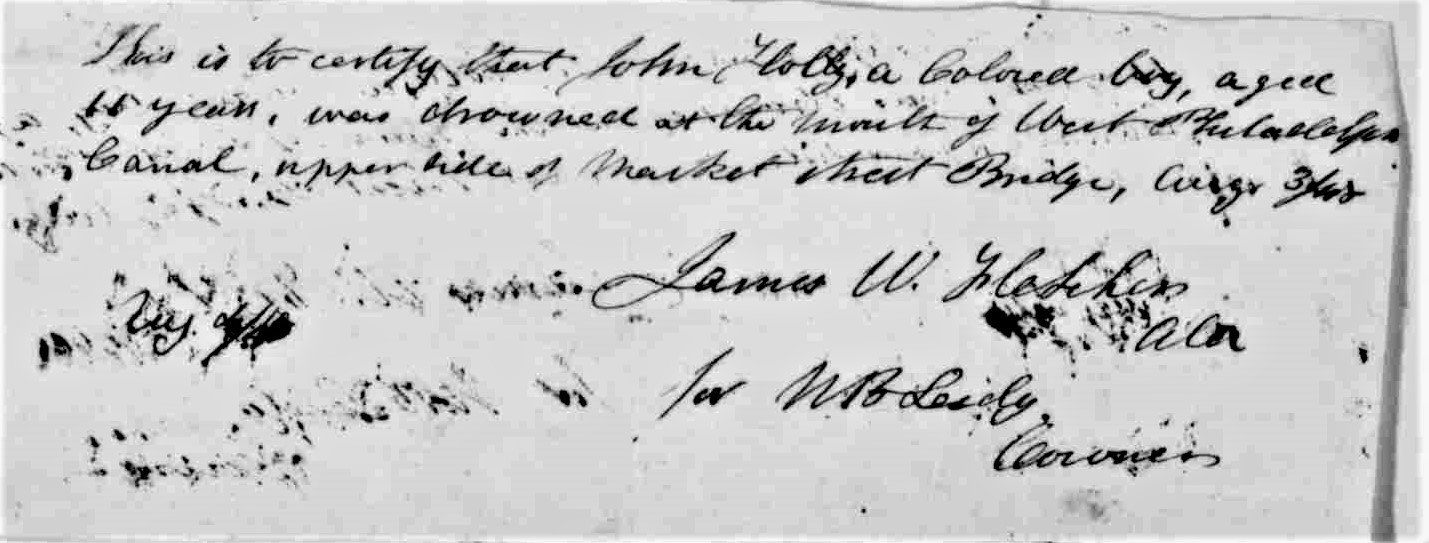 This is to certify that John Holly, a Colored boy, aged
11 years, was drowned at the mouth of West Philadelphia
Canal, upper side of Market street Bridge, Augt 3/48
James W. Fletcher
Aug. 4/48
for N B Leidy
Coroner